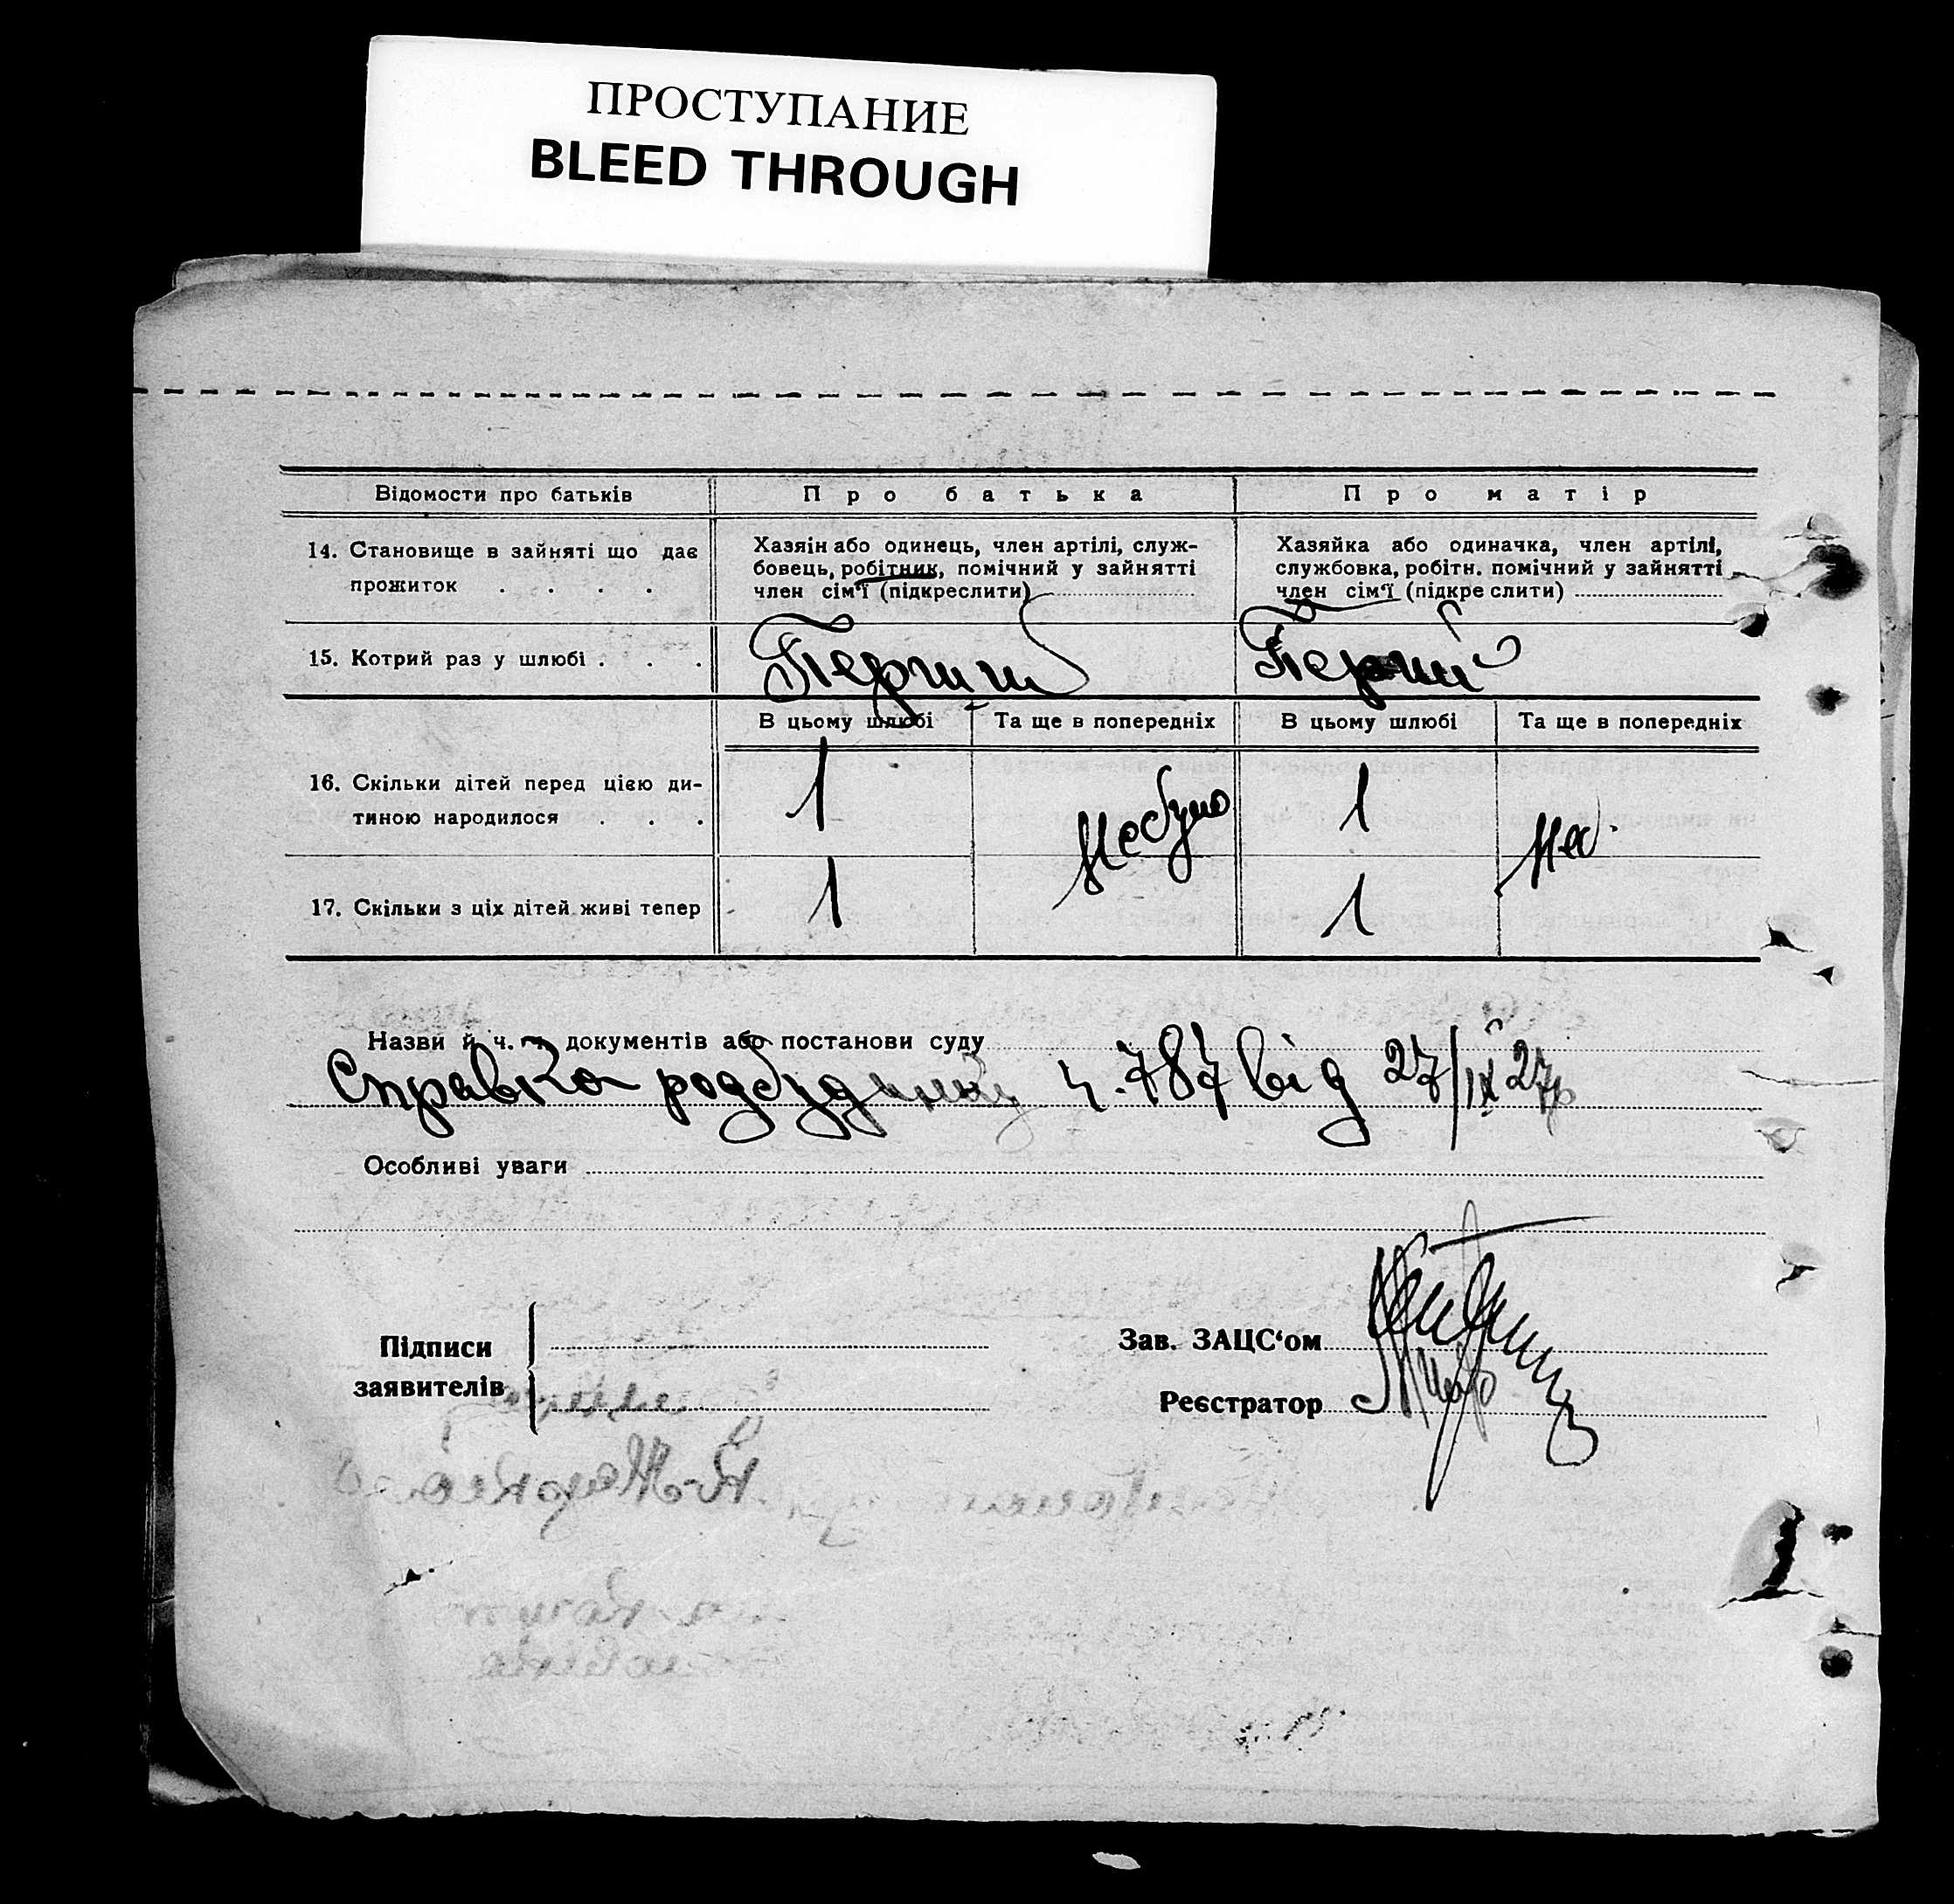 ПРОСТУПАНИЕ
BLEED THROUGH
Відомости про батьків
Про батька
Про матір
14. Становище в зайняті що дає
прожиток . . . .
Хазяін або одинець, член артілі, служ-
бовець, робітник, помічний у зайнятті
член сім'ї (підкреслити)
Хазяйка або одиначка, член артілі,
службовка, робітн. помічний у зайнятті
член сім'ї (підкре слити)
15. Котрий раз у шлюбі . . .
Перший
Перший
В цьому шлюбі
Та ще в попередніх
В цьому шлюбі
Та ще в попередніх
16. Скільки дітей перед цією ди-
тиною народилося . . .
1
Небуло
1
Не
17. Скільки з ціх дітей живі тепер
1
1
Назви й ч. ч. документів або постанови суду
Справка родбудинку ч. 787 від 27/IX 27р
Особливі уваги
Підписи
заявителів
Зав. ЗАЦС‘ом
Реєстратор